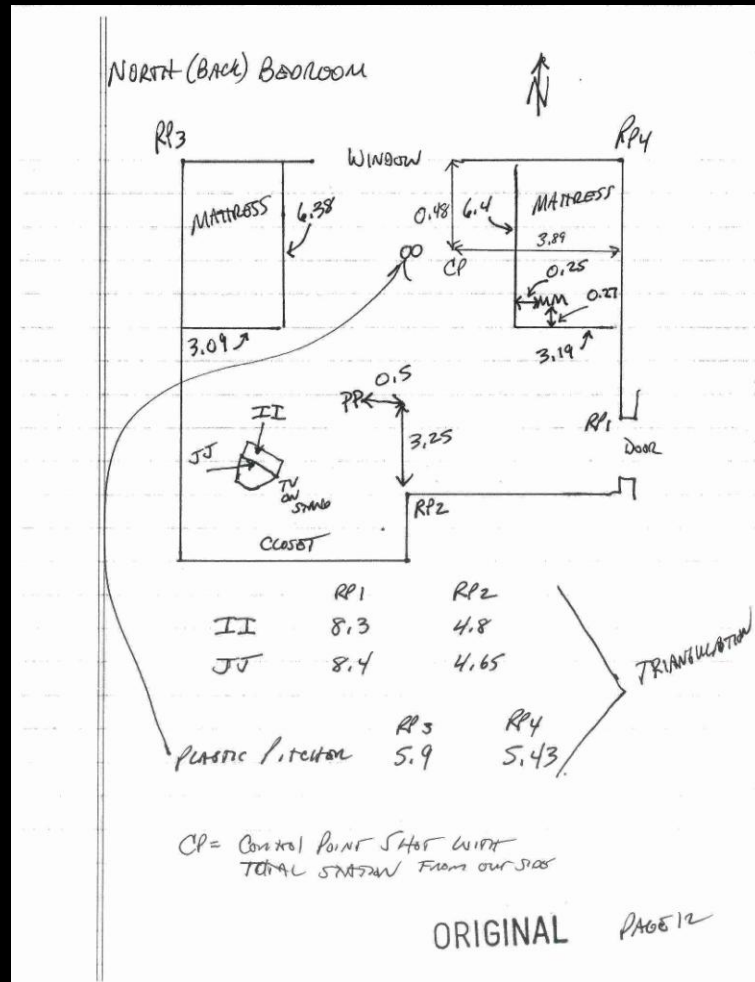 NORTH (BACK) BEDROOM
N
RP3
WINDOW
RP4
MATTRESS
6.38
0.48
6.4
MATTRESS
3.89
CP
0.25
MM
0.27
3.09
3.19
0.5
PP
II
RP1
3.25
DOOR
JJ
TV
ON
STAND
RP2
CLOSET
RP1 RP2
II 8.3 4.8
JJ 8.4 4.65
TRIANGULATION
RP3 RP4
PLASTIC PITCHER 5.9 5.43
CP = CONTROL POINT SHOT WITH
TOTAL STATION FROM OUTSIDE
ORIGINAL PAGE 12